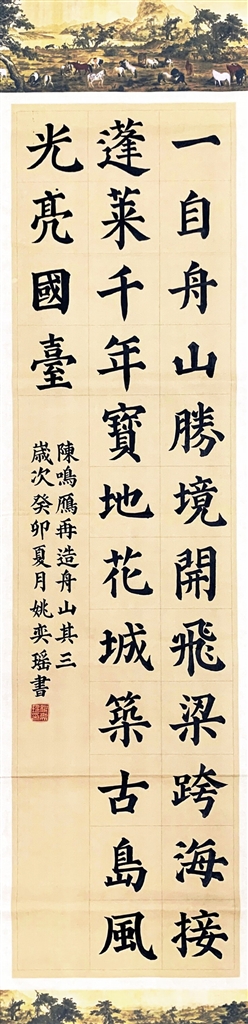 一自舟山勝境開飛梁跨海接
蓬萊千年寶地花城築古島風
光亮國臺
陳鳴鴈再造舟山其三
歲次癸卯夏月姚奕瑶書